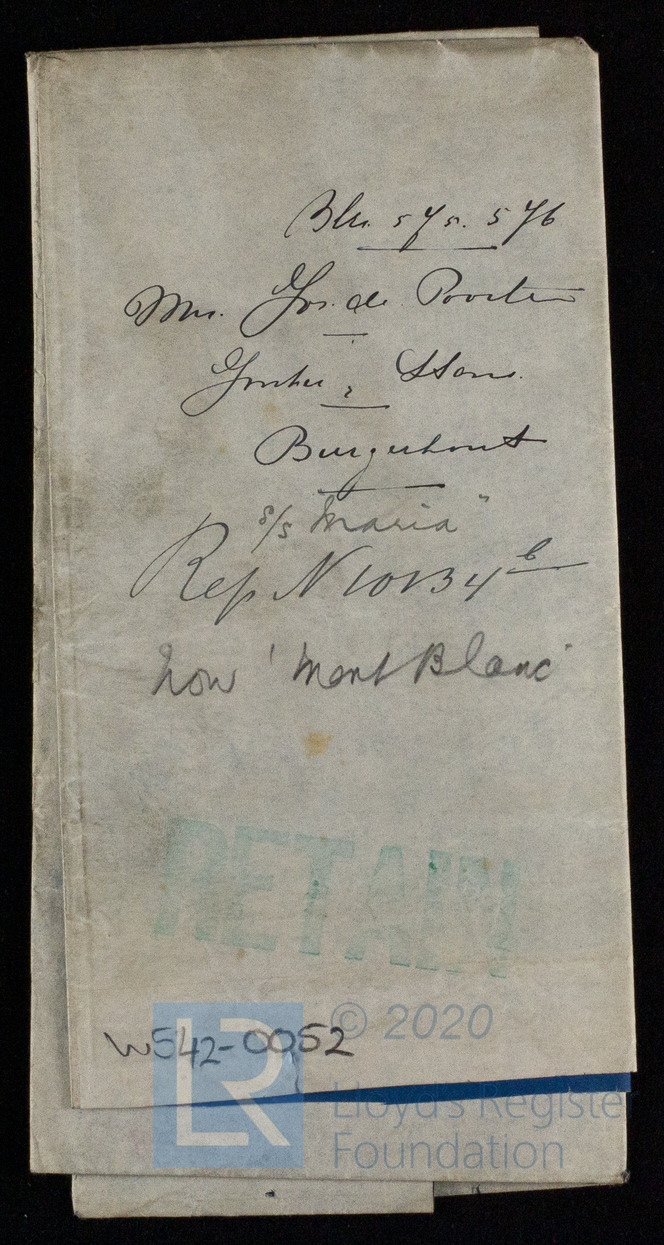 Blu. 575. 576
Mr. Jos. de Poorter
& Hand.
Burgerhout
s/s Maria"
Rep N 10134 b
now 'Mont Blanc"
RETAIN
W542-0052
LR
© 2020
Lloyd's Register
Foundation